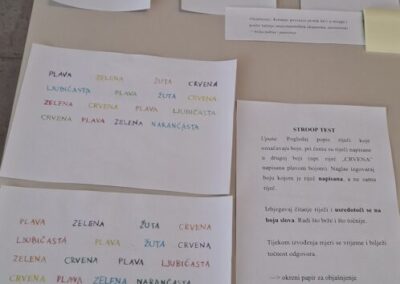 PLAVA ZELENA ŽUTA CRVENA
LJUBIČASTA PLAVA ŽUTA CRVENA
ZELENA CRVENA PLAVA LJUBIČASTA
CRVENA PLAVA ZELENA NARANČASTA
PLAVA ZELENA ŽUTA CRVENA
LJUBIČASTA PLAVA ŽUTA CRVENA
ZELENA CRVENA PLAVA LJUBIČASTA
CRVENA PLAVA ZELENA NARANČASTA
STROOP TEST
Upute: Pogledaj popis riječi koje
označavaju boje, pri čemu su riječi napisane
u drugoj boji (npr. riječ „CRVENA”
napisana plavom bojom). Naglas izgovaraj
boju kojom je riječ napisana, a ne samu
riječ.
Izbjegavaj čitanje riječi i usredotoči se na
boju slova. Radi što brže i što točnije.
Tijekom izvođenja mjeri se vrijeme i bilježi
točnost odgovora.
---> okreni papir za objašnjenje